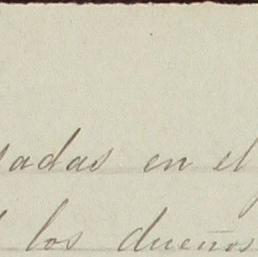 sadas en el
los dueños